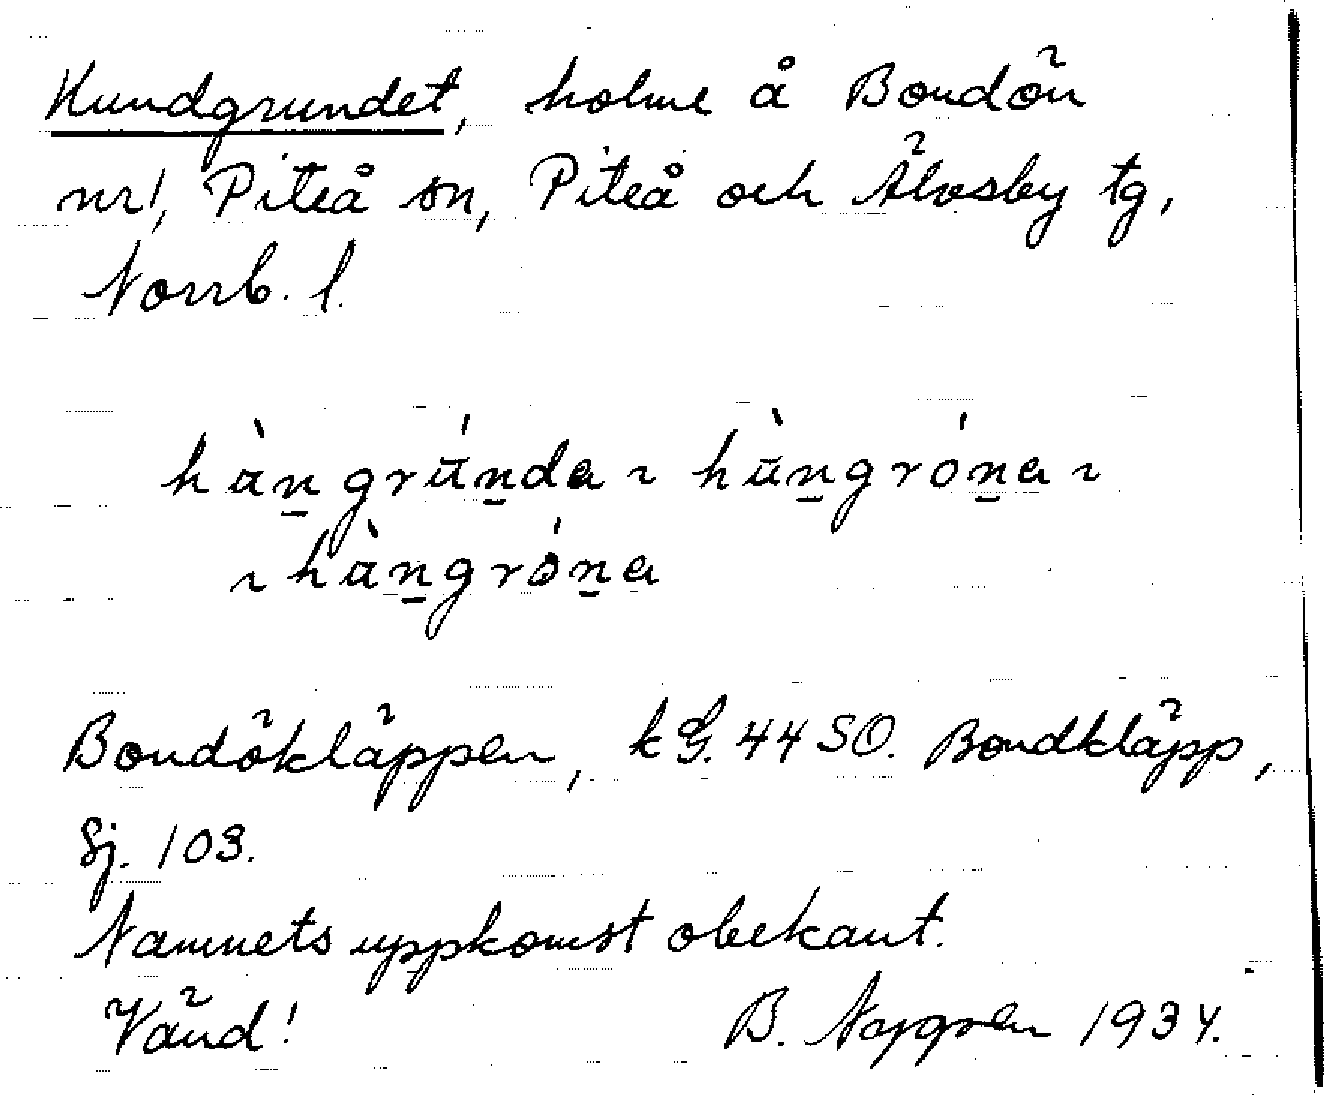 Hundgrundet, holme å Bondön
nr 1, Piteå sn, Piteå och Älvsby tg,
Norrb. l.
hὰn̠grúndа ~ hùn̠grón̠a ~
~ hὰn̠grón̠a
Bondökläppen, kG. 44 SO. Bondkläpp,
Sj. 103.
Namnets uppkomst obekant.
Vänd! B. Nygren 1934.